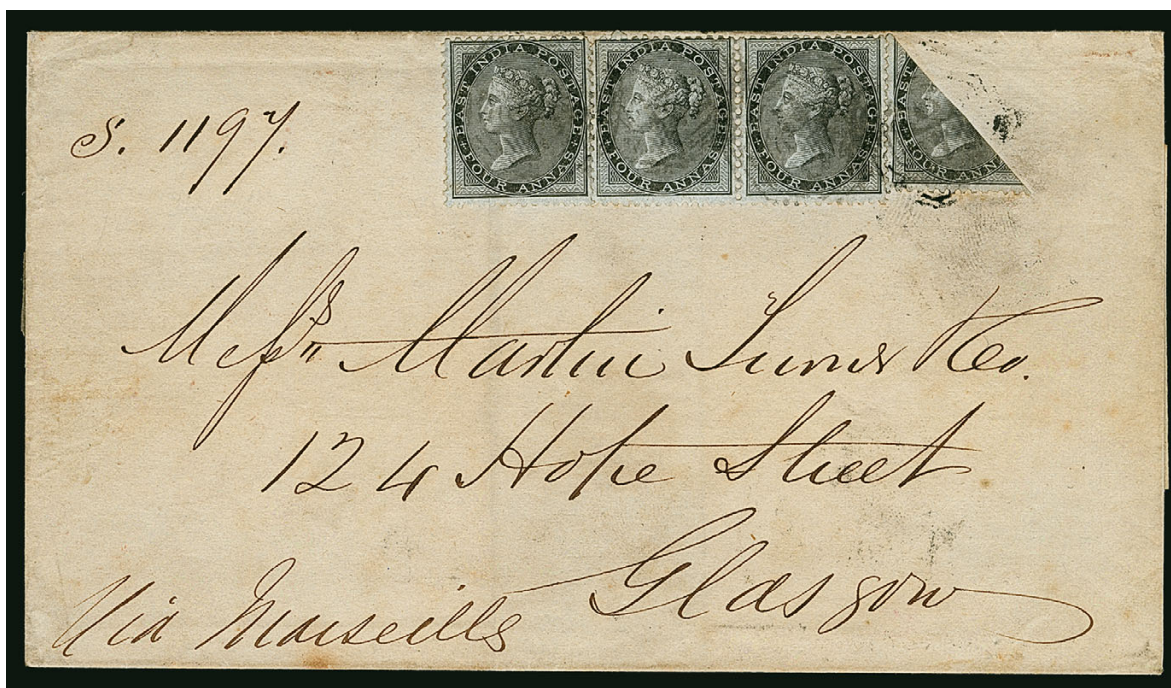 EAST INDIA POSTAGE FOUR ANNAS EAST INDIA POSTAGE FOUR ANNAS EAST INDIA POSTAGE FOUR ANNAS EAST FOUR ANN
S. 1197.
Messrs Martin Turner & Co.
124 Hope Street
Glasgow
Via Marseills